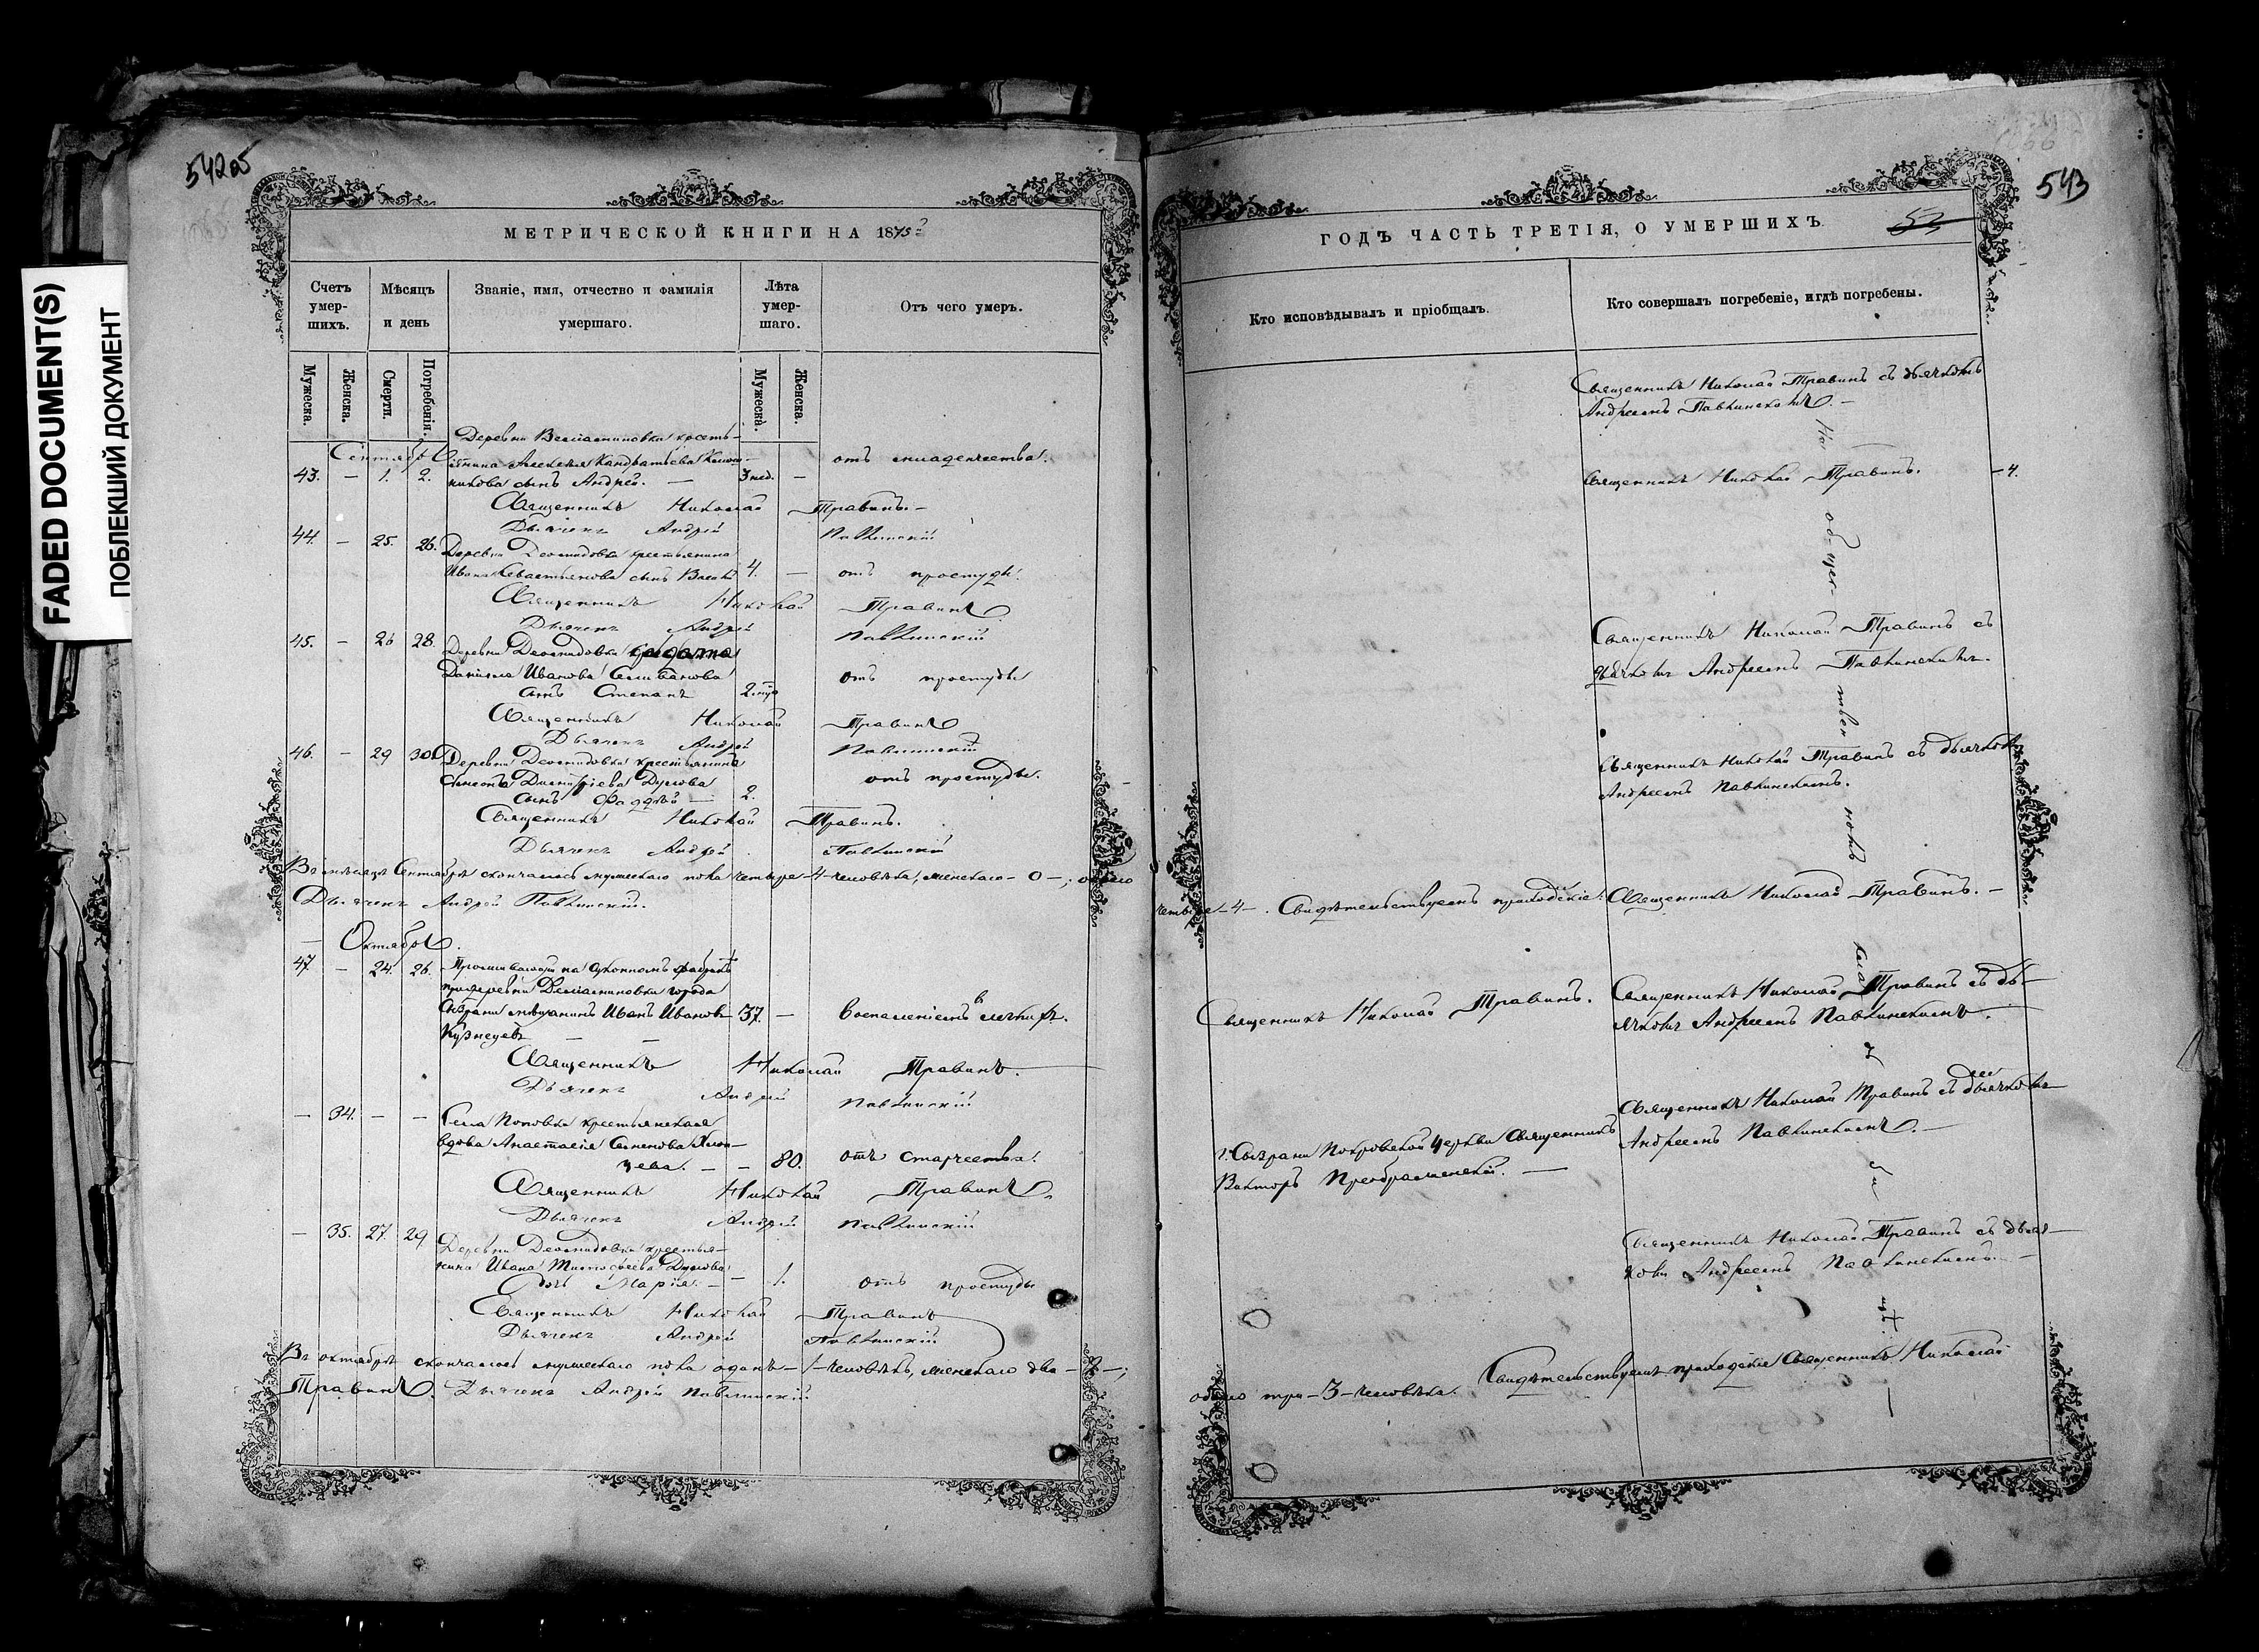 FADED DOCUMENT(S)
ПОБЛЕКШИЙ ДОКУМЕНТ
542об
МЕТРИЧЕСКОЙ КНИГИ НА 1875 г.
Счетъ умер-шихъ.
Мѣсяцъ и день
Званіе, имя, отчество и фамилія умершаго.
Лѣта умер-шаго.
Отъ чего умеръ.
Мужеска.
Женска.
Смерти.
Погребенія.
Мужеска.
Женска.
Сентябрь
Деревни кресть-
янина Алексея Кандратьева
43. – 1. 2. никова сынъ Андрей. – 3 нед. – отъ младенчества.
Священникъ Николай Травинъ. –
Дьячекъ Андрей Павлинскій
44. – 25. 26. Деревни Демидовки крестьянина
Ивана Севастьянова сынъ 4. – отъ простуды.
Священникъ Николай Травинъ
Дьячекъ Андрей Павлинскій
45. – 26 28. Деревни Демидовки солдата
Данила Иванова Селиванова
сынъ Степанъ 2. отъ простуды
Священникъ Николай Травинъ
Дьячекъ Андрей Павлинскій
46. – 29 30. Деревни Демидовки крестьянина
Симеона Димитріева
сынъ Фаддей – 2. отъ простуды.
Священникъ Николай Травинъ.
Дьячекъ Андрей Павлинскій
Въ мѣсяцѣ Сентябрѣ скончалось мужескаго пола четыре – 4 – человѣка, женскаго – 0 –; обоего
Дьячекъ Андрей Павлинскій.
– Октябрь.
47 – 24. 26. Проживающій на суконной фабрикѣ
при деревни города
Сызрани мѣщанинъ Иванъ Ивановъ 37. – воспаленіемъ въ легкихъ.
Кузнецовъ – –
Священникъ Николай Травинъ.
Дьячекъ Андрей Павлинскій
– 34. – – Села Поповки крестьянская
вдова Анастасія Семенова
– – 80. отъ старчества.
Священникъ Николай Травинъ.
Дьячекъ Андрей Павлинскій
– 35. 27. 29 Деревни Демидовки крестья-
нина Ивана Тимофеева
дочь Марія. – – 1. отъ простуды
Священникъ Николай Травинъ
Дьячекъ Андрей Павлинскій
Въ октябрѣ скончалось мужескаго пола одинъ – 1 – человѣкъ, женскаго два – 2 –;
Травинъ. Дьячекъ Андрей Павлинскій.
543
52
ГОДЪ ЧАСТЬ ТРЕТІЯ, О УМЕРШИХЪ.
Кто исповѣдывалъ и пріобщалъ.
Кто совершалъ погребеніе, и гдѣ погребены.
Священникъ Николай Травинъ съ дьячкомъ
Андреемъ Павлинскимъ. –
Священникъ Николай Травинъ. – 4.
Священникъ Николай Травинъ съ
дьячкомъ Андреемъ Павлинскимъ.
Священникъ Николай Травинъ съ дьячкомъ
Андреемъ Павлинскимъ.
На общественномъ кладбищѣ.
четыре – 4 –. Свидѣтельствуемъ приходскіе: Священникъ Николай Травинъ. –
Священникъ Николай Травинъ.
Священникъ Николай Травинъ съ дь-
ячкомъ Андреемъ Павлинскимъ.
г. Сызрани Покровской церкви Священникъ
Викторъ Преображенскій. –
Священникъ Николай Травинъ съ дьячкомъ
Андреемъ Павлинскимъ. –
Священникъ Николай Травинъ съ дьяч-
комъ Андреемъ Павлинскимъ. –
обоего три – 3 – человѣка. Свидѣтельствуемъ приходскіе Священникъ Николай